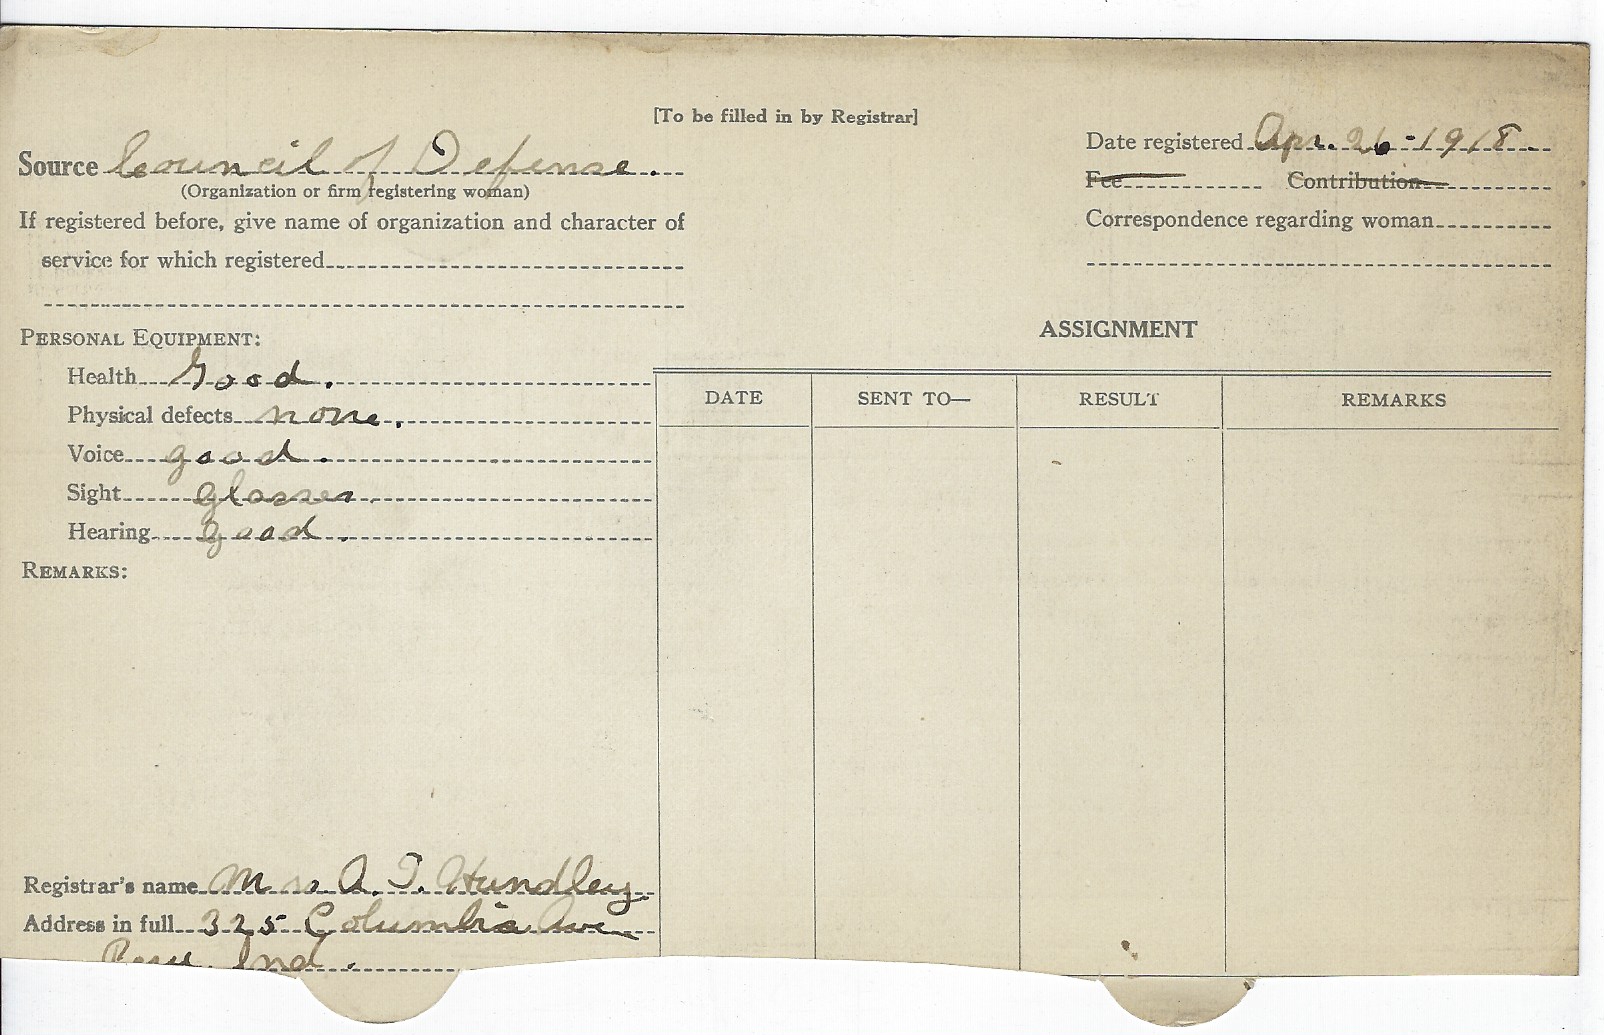 [To be filled in by Registrar]
Source Council of Defense.
(Organization or firm registering woman)
If registered before, give name of organization and character of
service for which registered
Date registered Apr. 26-1918
Fee Contribution
Correspondence regarding woman
PERSONAL EQUIPMENT:
Health Good.
Physical defects none.
Voice good.
Sight glasses.
Hearing good.
REMARKS:
ASSIGNMENT
DATE SENT TO— RESULT REMARKS
Registrar's name Mrs A. T. Hundley
Address in full 325 Columbia Ave
Peru, Ind.